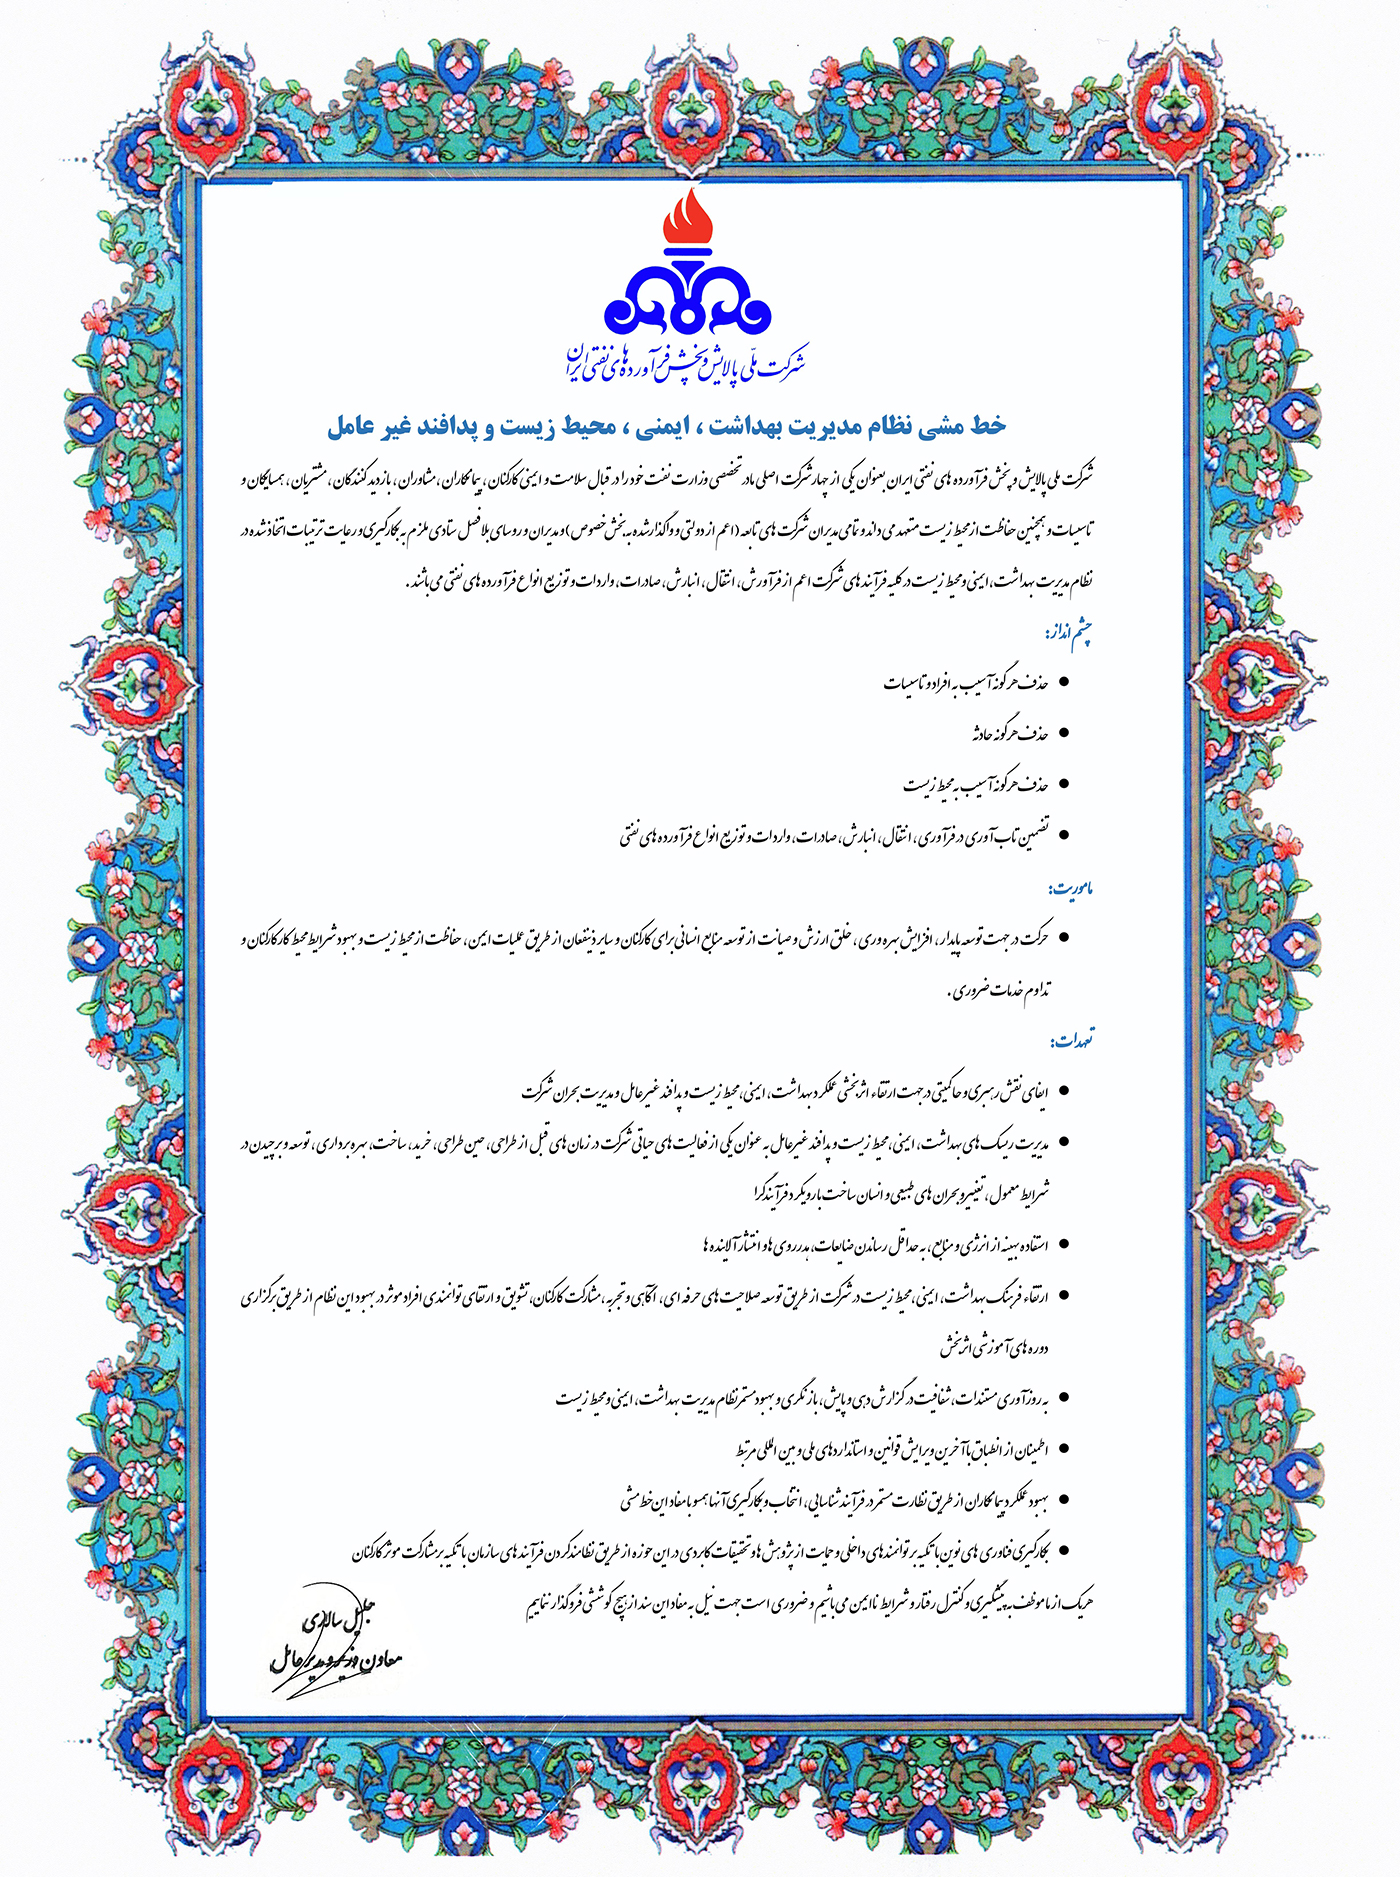 شرکت ملّی پالایش و پخش فرآورده‌های نفتی ایران
خط مشی نظام مدیریت بهداشت ، ایمنی ، محیط زیست و پدافند غیر عامل
شرکت ملی پالایش و پخش فرآورده های نفتی ایران بعنوان یکی از چهار شرکت اصلی مادر تخصصی وزارت نفت خود را در قبال سلامت و ایمنی کارکنان ، پیمانکاران ، مشاوران ، بازدید کنندگان ، مشتریان ، همسایگان و
تاسیسات و همچنین حفاظت از محیط زیست متعهد می داند و تمامی مدیران شرکت های تابعه (اعم از دولتی و واگذار شده به بخش خصوص) و مدیران و روسای بلافصل ستادی ملزم به بکارگیری و رعایت ترتیبات اتخاذ شده در
نظام مدیریت بهداشت، ایمنی و محیط زیست در کلیه فرآیند های شرکت اعم از فرآورش، انتقال، انبارش، صادرات، واردات و توزیع انواع فرآورده های نفتی می باشند .
چشم انداز:
● حذف هر گونه آسیب به افراد و تاسیسات
● حذف هر گونه حادثه
● حذف هر گونه آسیب به محیط زیست
● تضمین تاب آوری در فرآوری، انتقال، انبارش، صادرات، واردات و توزیع انواع فرآورده های نفتی
ماموریت:
● حرکت در جهت توسعه پایدار ، افزایش بهره وری ، خلق ارزش و صیانت از توسعه منابع انسانی برای کارکنان و سایر ذینفعان از طریق عملیات ایمن، حفاظت از محیط زیست و بهبود شرایط محیط کار کارکنان و
تداوم خدمات ضروری .
تعهدات:
● ایفای نقش رهبری و حاکمیتی در جهت ارتقاء اثربخشی عملکرد بهداشت، ایمنی، محیط زیست و پدافند غیر عامل و مدیریت بحران شرکت
● مدیریت ریسک های بهداشت، ایمنی، محیط زیست و پدافند غیر عامل به عنوان یکی از فعالیت های حیاتی شرکت در زمان های قبل از طراحی، حین طراحی، خرید، ساخت، بهره برداری، توسعه و برچیدن در
شرایط معمول، تغییر و بحران های طبیعی و انسان ساخت با رویکرد فرآیندگرا
● استفاده بهینه از انرژی و منابع، به حداقل رساندن ضایعات، هدرروی ها و انتشار آلاینده ها
● ارتقاء فرهنگ بهداشت، ایمنی، محیط زیست در شرکت از طریق توسعه صلاحیت های حرفه ای، آگاهی و تجربه، مشارکت کارکنان، تشویق و ارتقای توانمندی افراد موثر در بهبود این نظام از طریق برگزاری
دوره های آموزشی اثربخش
● به روز آوری مستندات، شفافیت در گزارش دهی و پایش، بازنگری و بهبود مستمر نظام مدیریت بهداشت، ایمنی و محیط زیست
● اطمینان از انطباق با آخرین ویرایش قوانین و استانداردهای ملی و بین المللی مرتبط
● بهبود عملکرد پیمانکاران از طریق نظارت مستمر در فرآیند شناسایی، انتخاب و بکارگیری آنها همسو با مفاد این خط مشی
● بکارگیری فناوری های نوین با تکیه بر توانمند های داخلی و حمایت از پژوهش ها و تحقیقات کاربردی در این حوزه از طریق نظامند کردن فرآیند های سازمان با تکیه بر مشارکت موثر کارکنان
هر یک از ما موظف به پیشگیری و کنترل رفتار و شرایط ناایمن می باشیم و ضروری است جهت نیل به مفاد این سند از هیچ کوششی فروگذار ننماییم
جلیل سالاری
معاون وزیر و مدیر عامل